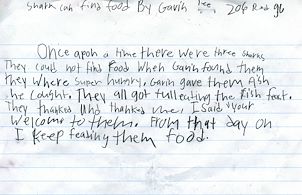 Sharn can find food By Gavin Lee 206 Rm 96
Once apon a time there were three sharks
They could not find food when Gavin found them
they where super hungry. Gavin gave them fish
he cought. They all got full eating the fish feat.
They thanked and thanked me. I said your
welcome to them. From that day on
I keep feading them food.